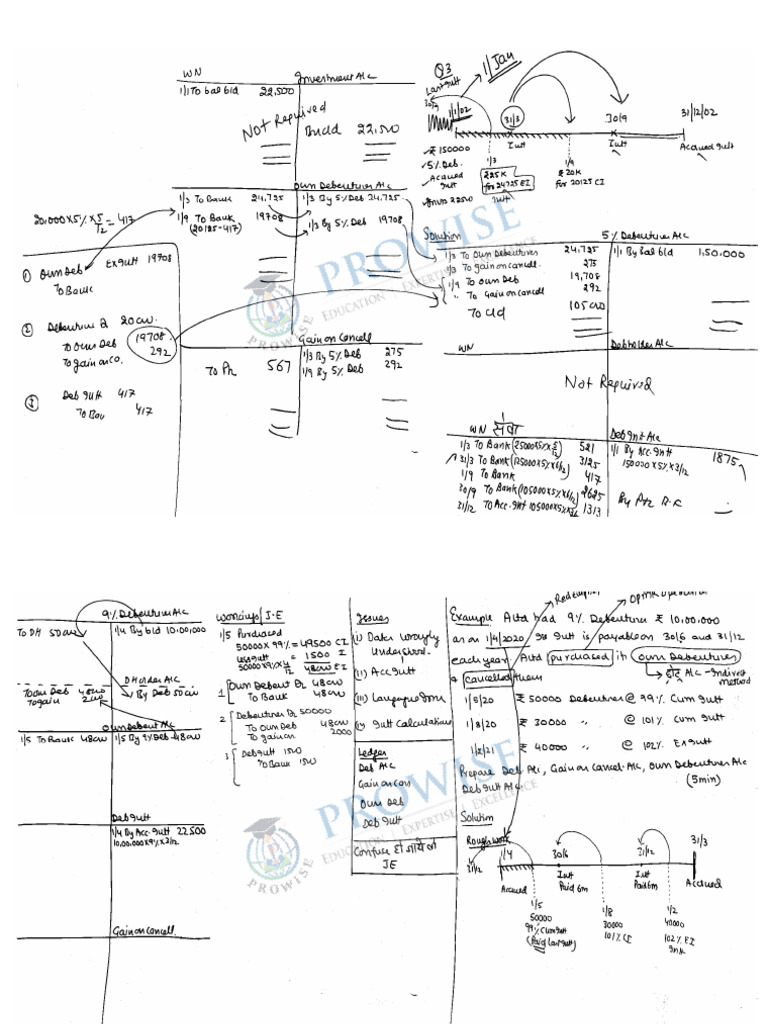 WN
Investment A/c
1/1 To bal b/d 22,500
Not Required
Bal c/d 22,500
Own Debentures A/c
1/3 To Bank 24,725
1/3 By 5% Deb 24,725
1/9 To Bank 19708
(20125-417)
1/9 By 5% Deb 19708
20,000x5%x5/12 = 417
① Own Deb Ex Intt 19708
To Bank
② Debentures Dr 20,000
To Own Deb 19708
To gain on Co. 292
③ Deb Intt 417
To Bank 417
Gain on Cancell
To P/L 567
1/3 By 5% Deb 275
1/9 By 5% Deb 292
Q3
1/Jan
Last Intt
30/9
1/1/02
31/3
30/9
31/12/02
Intt
Intt
Accrued Intt
₹ 150000
5% Deb.
Accrued Intt
Invts 22500
1/3
225K
for 24725 EI
Intt
1/9
₹ 20K
for 20125 CI
Solution
5% Debentures A/c
1/3 To Own Debentures 24,725
1/1 By bal b/d 1,50,000
1/3 To gain on cancell. 275
1/9 To Own Deb 19,708
" To Gain on Cancell 292
To c/d 105000
WN
Debholder A/c
Not Required
WN
Deb Int A/c
1/3 To Bank (25000x5%x5/12) 521
1/1 By Acc. Intt 1875
150000x5%x3/12
31/3 To Bank (125000x5%x6/12) 3125
1/9 To Bank 417
30/9 To Bank (105000x5%x6/12) 2625
31/12 To Acc. Intt 105000x5%x3/12 1313
9% Debentures A/c
To DH 50000
1/4 By b/d 10,00,000
DHolder A/c
To Own Deb 48000
By Deb 50000
To gain 2000
Own Debent A/c
1/5 To Bank 48000
1/5 By 9% Deb 48000
Deb Intt
1/4 By Acc. Intt 22500
10,00,000x9%x3/12
Gain on Cancell.
Workings / J.E
1/5 Purchased
50000x99% = 49500 CI
Less Intt = 1500 I
50000x9%x4/12
48000 EI
1 Own Debent Dr 48000
To Bank 48000
2 Debentures Dr 50000
To Own Deb 48000
To gain on 2000
3 Deb Intt 1500
To Bank 1500
Issues
(i) Dates wrongly
Understood.
(ii) Acc Intt
(iii) Language Issue
(iv) Intt Calculations
Ledger
Deb A/c
Gain on Can
Own Deb
Deb Intt
Confuse हो जाये तो
JE
Redemption
Example A Ltd had 9% Debentures ₹ 10,00,000
as on 1/4/2020 Intt is payable on 30/6 and 31/12
each year. A Ltd purchased its own Debentures
& cancelled them
A/c - Indirect
method
1/5/20 ₹ 50000 Debentures @ 99% Cum Intt
1/8/20 ₹ 30000 " @ 101% Cum Intt
1/2/21 ₹ 40000 " @ 102% Ex Intt
Prepare Deb A/c, Gain on Cancel. A/c, Own Debentures A/c
Deb Intt A/c.
(5min)
Solution
Rough work
31/12
1/4
30/6
31/12
31/3
Accrued
Intt
Paid 6m
Intt
Paid 6m
Accrued
1/5
50000
99% Cum Intt
(Paid Last Intt)
1/8
30000
101% CI
1/2
40000
102% EI
PROWISE
EDUCATION | EXPERTISE | EXCELLENCE
PROWISE
PROWISE
EDUCATION | EXPERTISE | EXCELLENCE
PROWISE